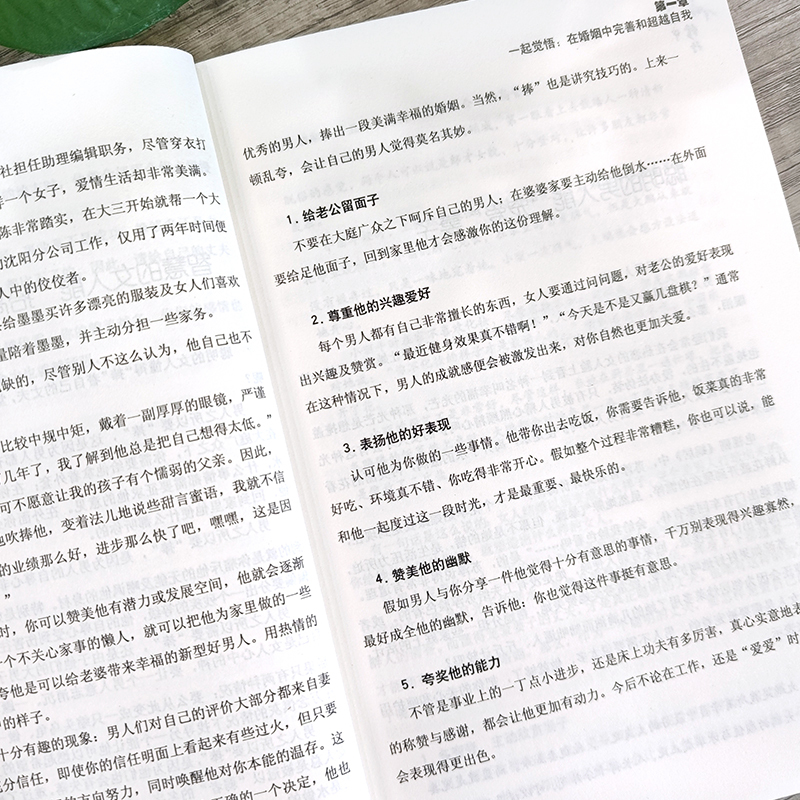 社担任助理编辑职务，尽管穿衣打
一个女子，爱情生活却非常美满。
陈非常踏实，在大三开始就帮一个大
沈阳分公司工作，仅用了两年时间便
人中的佼佼者。
给墨墨买许多漂亮的服装及女人们喜欢
陪着墨墨，并主动分担一些家务。
缺的，尽管别人不这么认为，他自己也不
比较中规中矩，戴着一副厚厚的眼镜，严谨
几年了，我了解到他总是把自己想得太低。”
可不愿意让我的孩子有个懦弱的父亲。因此，
吹捧他，变着法儿地说些甜言蜜语，我就不信
的业绩那么好，进步那么快了吧，嘿嘿，这是因
”
时，你可以赞美他有潜力或发展空间，他就会逐渐
一个不关心家事的懒人，就可以把他为家里做的一些
夸他是可以给老婆带来幸福的新型好男人。用热情的
的样子。
十分有趣的现象：男人们对自己的评价大部分都来自妻
分信任，即使你的信任明面上看起来有些过火，但只要
的方向努力，同时唤醒他对你本能的温存。这
正确的一个决定，他也
第一章
一起觉悟：在婚姻中完善和超越自我
优秀的男人，捧出一段美满幸福的婚姻。当然，“捧”也是讲究技巧的。上来一
顿乱夸，会让自己的男人觉得莫名其妙。
1. 给老公留面子
不要在大庭广众之下呵斥自己的男人；在婆婆家要主动给他倒水……在外面
要给足他面子，回到家里他才会感激你的这份理解。
2. 尊重他的兴趣爱好
每个男人都有自己非常擅长的东西，女人要通过问问题，对老公的爱好表现
出兴趣及赞赏。“最近健身效果真不错啊！”“今天是不是又赢几盘棋？”通常
在这种情况下，男人的成就感便会被激发出来，对你自然也更加关爱。
3. 表扬他的好表现
认可他为你做的一些事情。他带你出去吃饭，你需要告诉他，饭菜真的非常
好吃、环境真不错、你吃得非常开心。假如整个过程非常糟糕，你也可以说，能
和他一起度过这一段时光，才是最重要、最快乐的。
4. 赞美他的幽默
假如男人与你分享一件他觉得十分有意思的事情，千万别表现得兴趣寡然，
最好成全他的幽默，告诉他：你也觉得这件事挺有意思。
5. 夸奖他的能力
不管是事业上的一丁点小进步，还是床上功夫有多厉害，真心实意地表
的称赞与感谢，都会让他更加有动力。今后不论在工作，还是“爱爱”时
会表现得更出色。